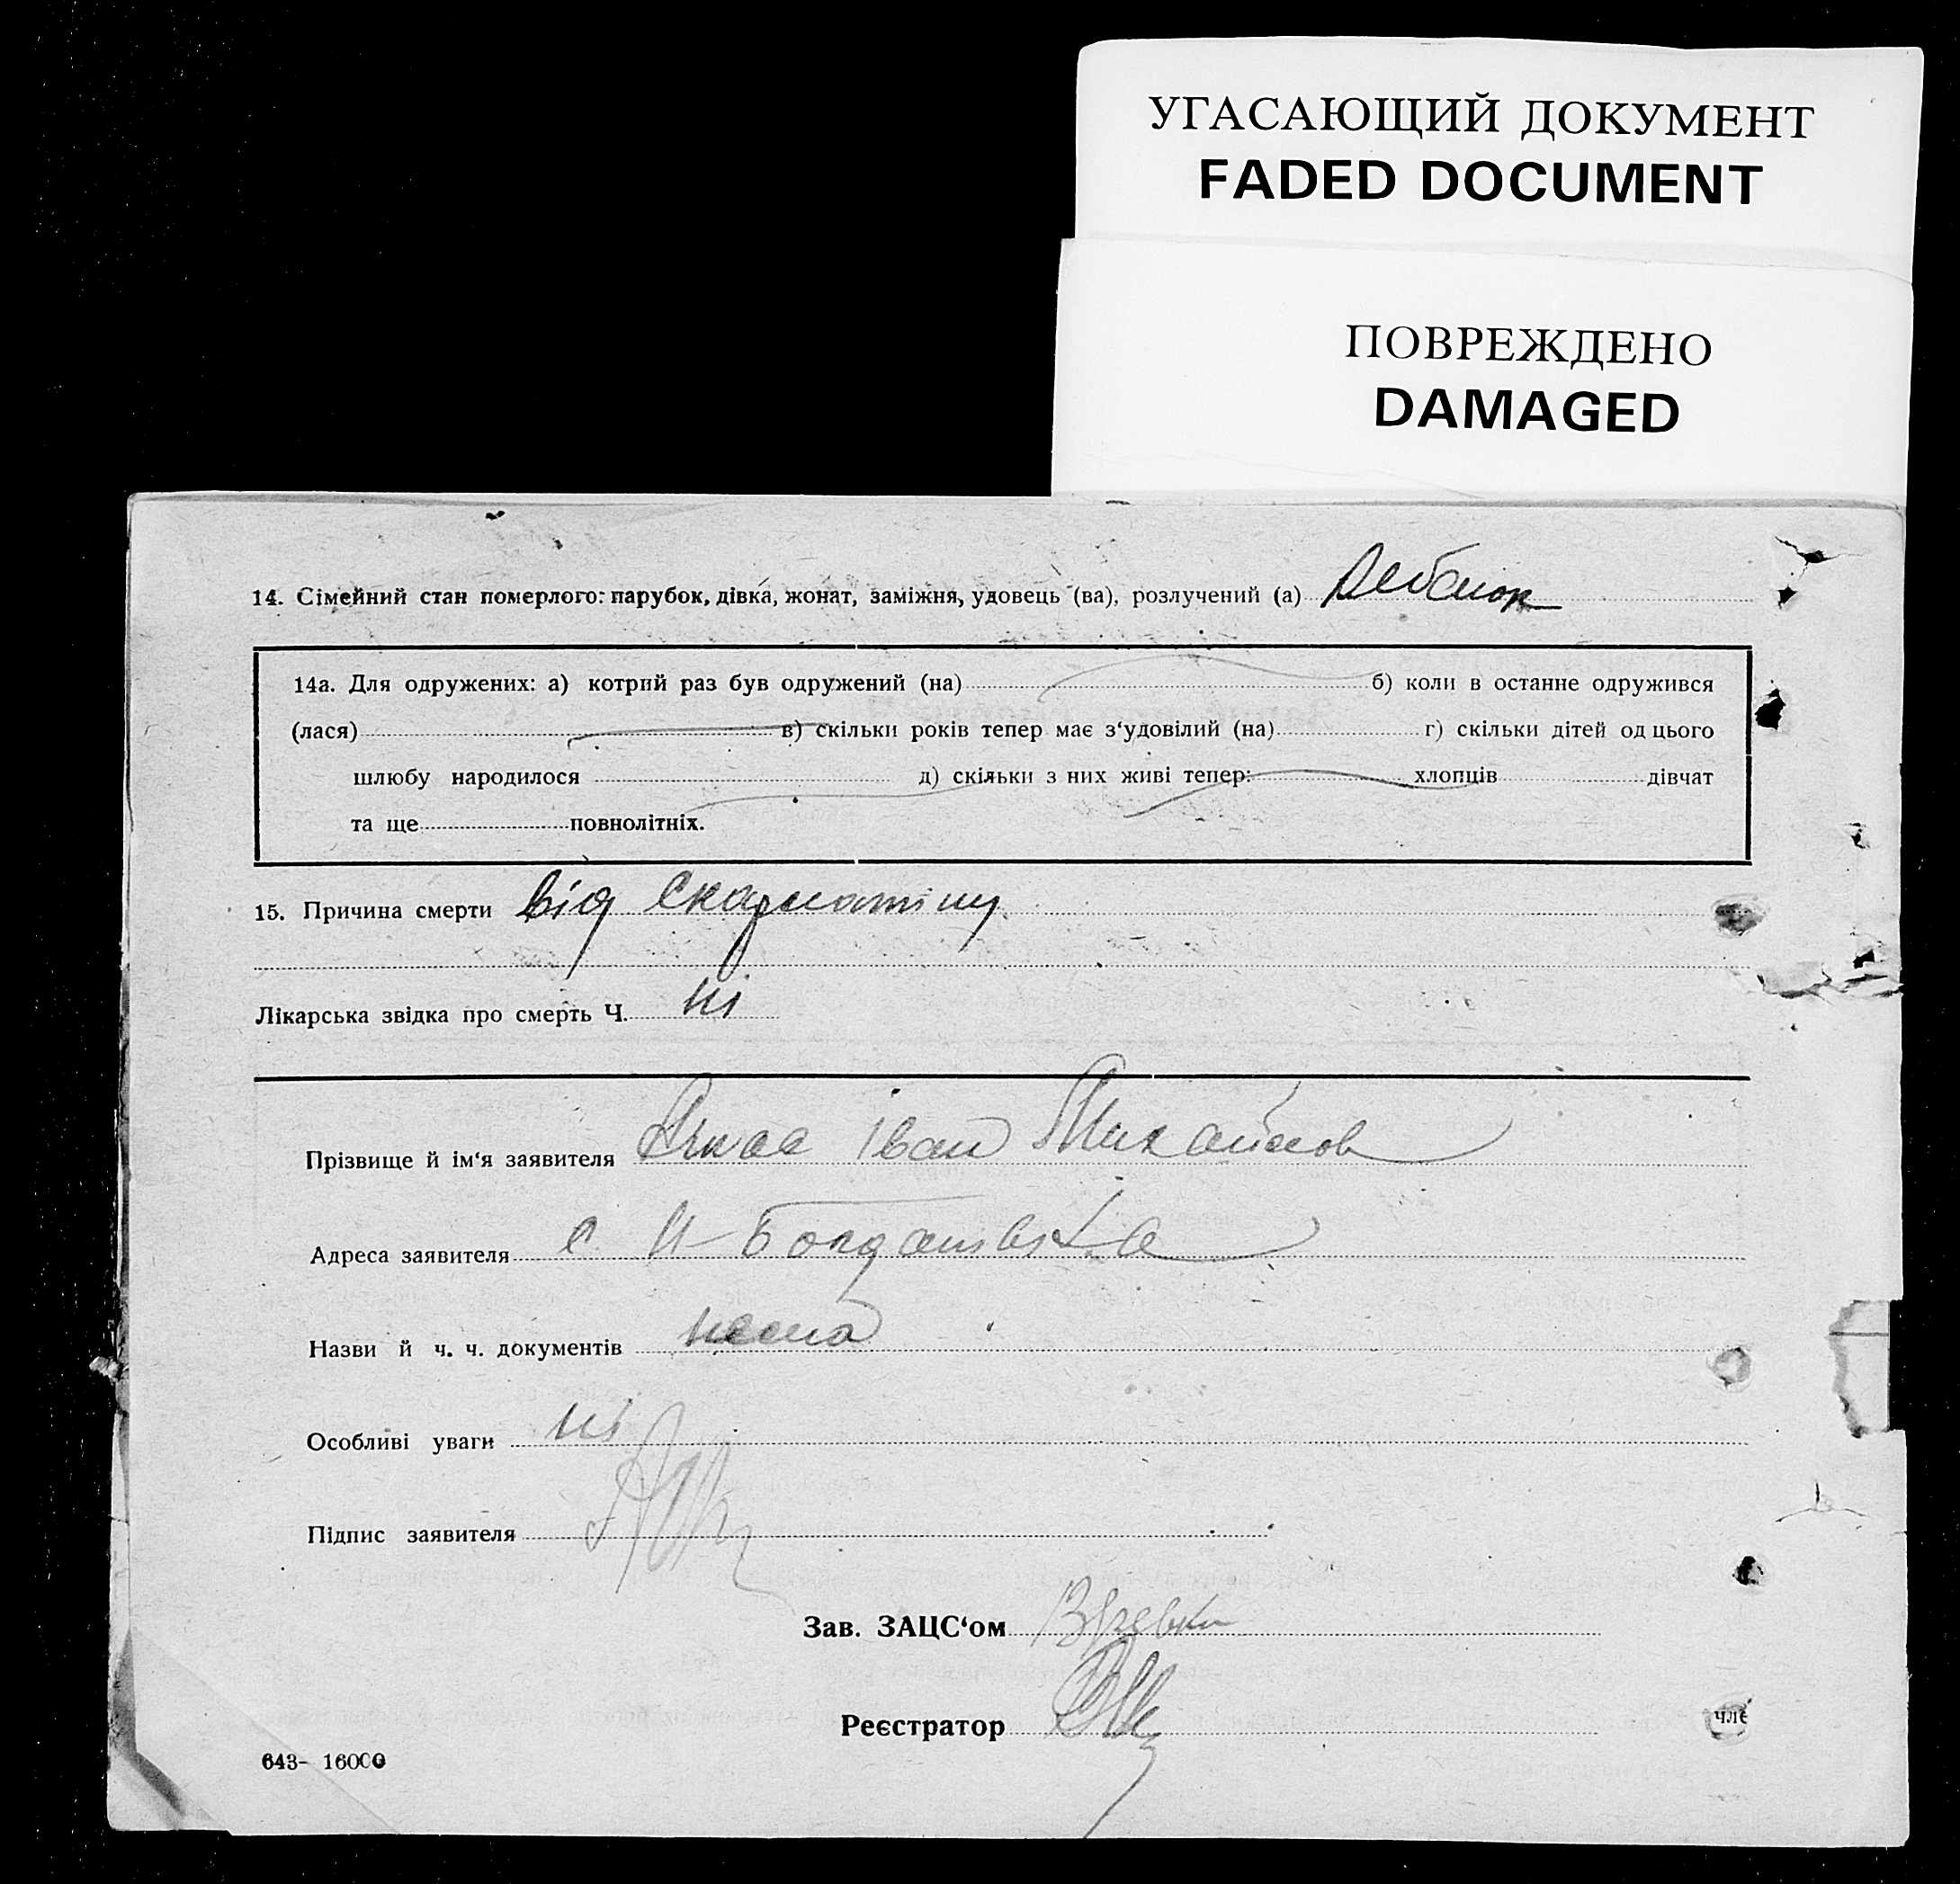 УГАСАЮЩИЙ ДОКУМЕНТ
FADED DOCUMENT
ПОВРЕЖДЕНО
DAMAGED
14. Сімейний стан померлого: парубок, дівка, жонат, заміжня, удовець (ва), розлучений (а)
14а. Для одружених: а) котрий раз був одружений (на) б) коли в останне одружився
(лася) в) скільки років тепер має з‘удовілий (на) г) скільки дітей од цього
шлюбу народилося д) скільки з них живі тепер: хлопців дівчат
та ще повнолітніх.
15. Причина смерти від Скарлатіни
Лікарська звідка про смерть Ч. ні
Прізвище й ім‘я заявителя Іван Михайлов
Адреса заявителя с. Н-Богданівка
Назви й ч. ч. документів нема
Особливі уваги ні
Підпис заявителя
Зав. ЗАЦС‘ом
Реєстратор
643- 16000
чле